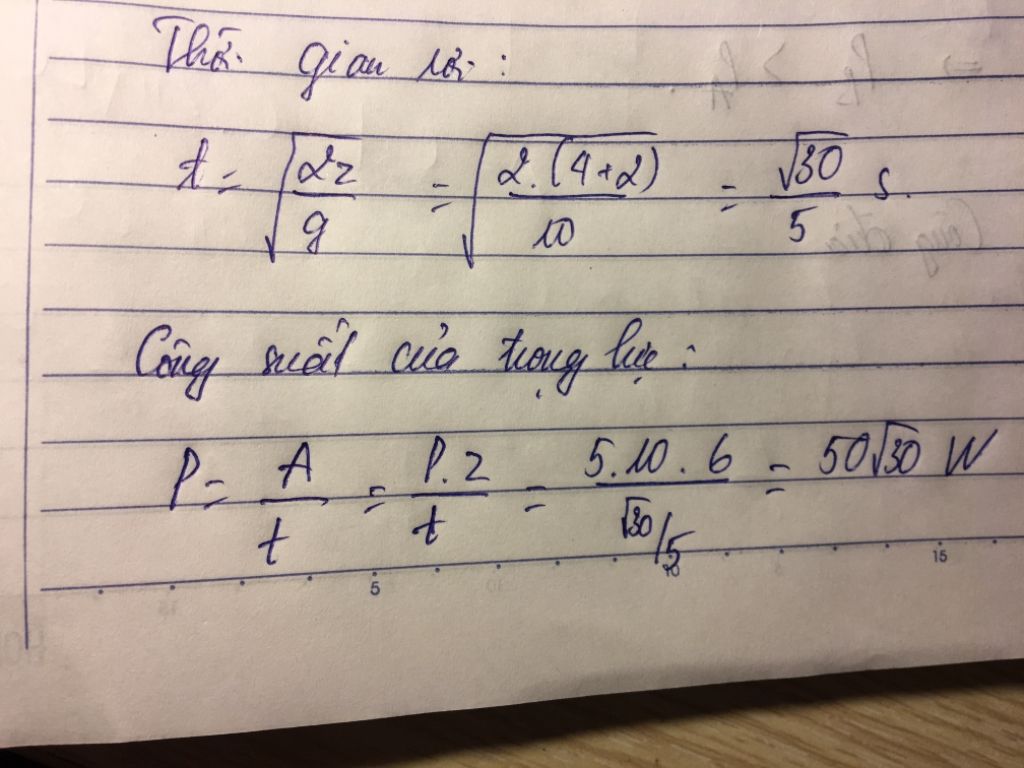 Thời gian rơi:
t = √(2z/g) = √(2.(4+2)/10) = √30/5 s.
Công suất của trọng lực:
P = A/t = P.z/t = 5.10.6/(√30/5) = 50√30 W
5 10 15